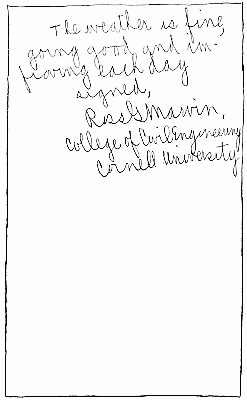 The weather is fine,
going good and im-
proving each day
signed,
Ross G Marvin,
College of Civil Engineering
Cornell University